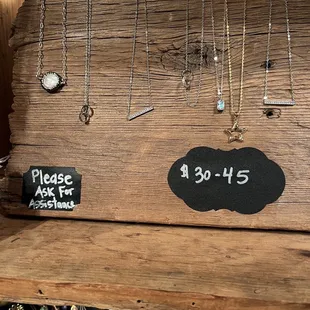 Please
Ask For
Assistance
$30-45